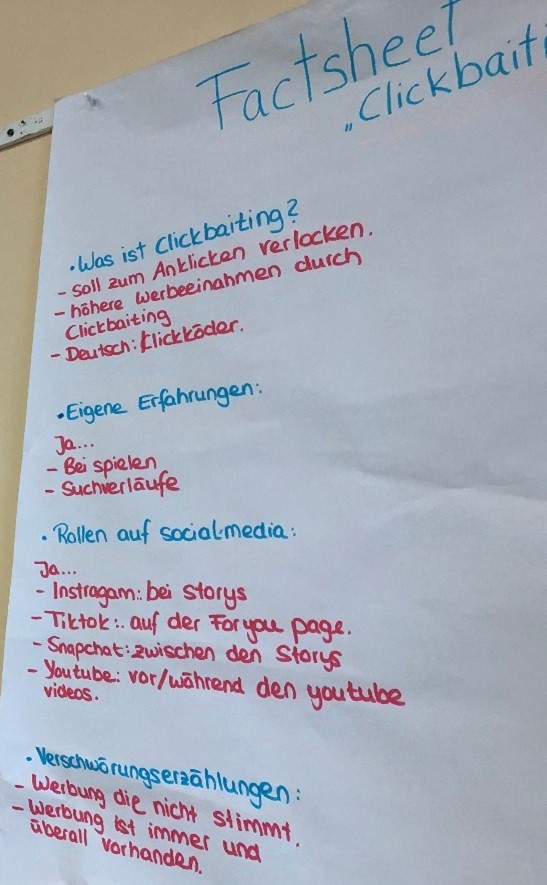 Factsheet
„Clickbaiti
• Was ist Clickbaiting?
- Soll zum Anklicken verlocken.
- höhere Werbeeinahmen durch
Clickbaiting
- Deutsch: Klickköder.
• Eigene Erfahrungen:
Ja...
- Bei spielen
- Suchverläufe
• Rollen auf socialmedia:
Ja...
- Instragam: bei Storys
- Tiktok: auf der For you page.
- Snapchat: zwischen den Storys
- Youtube: vor/während den youtube
videos.
• Verschwörungserzählungen:
- Werbung die nicht stimmt.
- Werbung ist immer und
überall vorhanden.